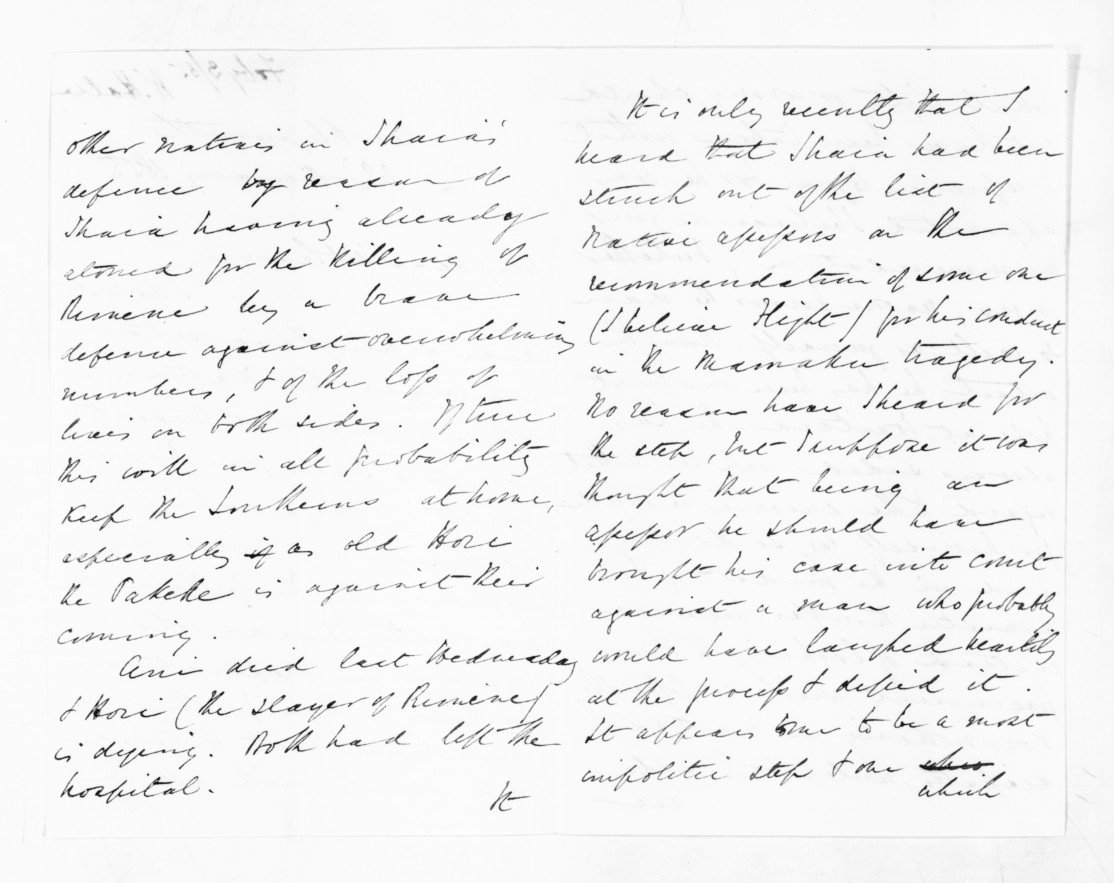 other natives in Ihaia's
defence by reason of
Ihaia having already
atoned for the killing of
Rimene by a brave
defence against overwhelming
numbers, & of the loss of
lives on both sides. If true
this will in all probability
keep the Southerns at home,
especially if as old Hori
the Pakeke is against their
coming.
Ani died last Wednesday
& Hori (the slayer of Rimene)
is dying. Both had left the
hospital.
It
It is only recently that I
heard that Ihaia had been
struck out of the list of
Native assessors on the
recommendation of some one
(I believe Flight) for his conduct
in the Mamaku tragedy.
No reason have I heard for
the step, but I suppose it was
thought that being an
assessor he should have
brought his case into court
against a man who probably
would have laughed heartily
at the process & defied it.
It appears to me to be a most
impolitic step & one
which